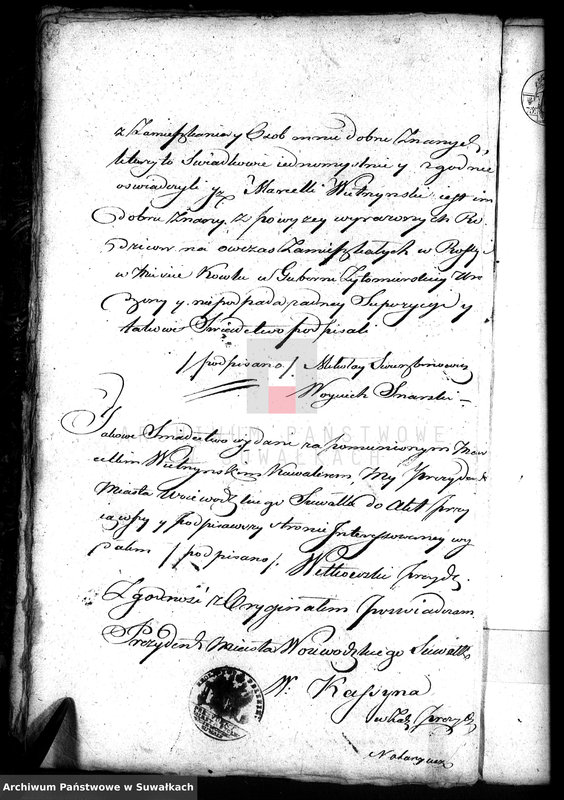 z Zamieszkania y Osob mnie dobrze Znanych,
ktorzy to Swiadkowie iednomyslnie y zgodnie
oswiadczyli Jż Marcelli Wiltrzynski iest im
dobrze Znany, z powyzey wyrazonych Ro-
dzicow na owczas Zamieszkałych w Rossyi
w Miescie Kowlu w Guberni Zytomirskiey Uro
dzony y nie podpada zadney Supozycyi y
takowe Swiadectwo podpisali
/:podpisano/: Mikołay
Woyciech Snarski -
Jakowe Swiadectwo wydane za pomienionym Mar
cellim Wiltrzynskim Kawalerem, My Prezydent
Miasta Woiewodzkiego Suwałk do Akt Przy
iąwszy y podpisawszy stronie Interessowaney wy
daliem /:podpisano/: Prezyd.
Zgodność z Oryginałem Poswiadczam
Prezydent Miasta Woiewodzkiego Suwałk
W: Kassyna
w Zast: Prezyd:
ARCHIWUM PAŃSTWOWE
W SUWAŁKACH
Archiwum Państwowe w Suwałkach